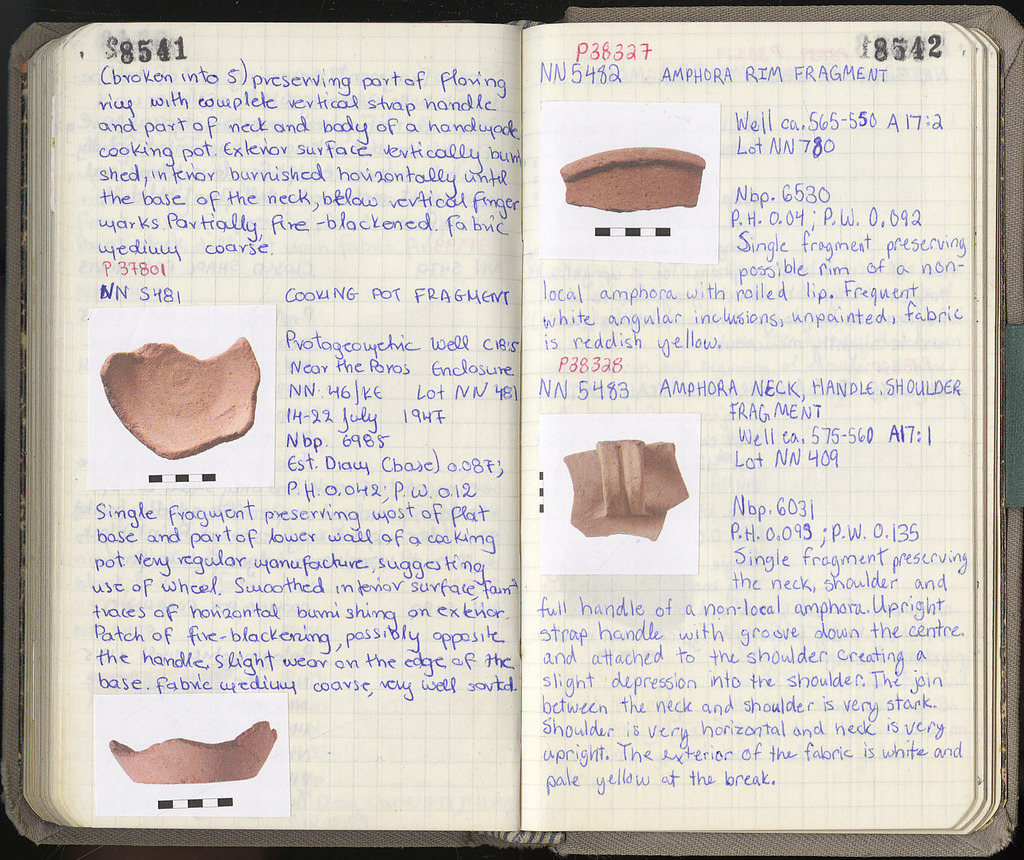 8541
(broken into 5) preserving part of flaring
ring with complete vertical strap handle
and part of neck and body of a handmade
cooking pot. Exterior surface vertically burni
shed, interior burnished horizontally until
the base of the neck, below vertical finger
marks. Partially fire-blackened. Fabric
medium coarse.
P 37801
NN 5481 COOKING POT FRAGMENT
Protogeometric Well C18:5
Near the Poros Enclosure
NN. 46/KE Lot NN 481
14-22 July 1947
Nbp. 6985
Est. Diam (base) 0.087;
P.H. 0.042; P.W. 0.12
Single fragment preserving most of flat
base and part of lower wall of a cooking
pot very regular manufacture, suggesting
use of wheel. Smoothed interior surface, faint
traces of horizontal burnishing on exterior.
Patch of fire-blackening, possibly opposite
the handle, slight wear on the edge of the
base. Fabric medium coarse, very well sorted.
8542
P38327
NN 5482 AMPHORA RIM FRAGMENT
Well ca. 565-550 A17:2
Lot NN 780
Nbp. 6530
P.H. 0.04; P.W. 0.092
Single fragment preserving
possible rim of a non-
local amphora with rolled lip. Frequent
white angular inclusions, unpainted, fabric
is reddish yellow.
P38328
NN 5483 AMPHORA NECK, HANDLE. SHOULDER
FRAGMENT
Well ca. 575-560 A17:1
Lot NN 409
Nbp. 6031
P.H. 0.093; P.W. 0.135
Single fragment preserving
the neck, shoulder and
full handle of a non-local amphora. Upright
strap handle with groove down the centre.
and attached to the shoulder creating a
slight depression into the shoulder. The join
between the neck and shoulder is very stark.
Shoulder is very horizontal and neck is very
upright. The exterior of the fabric is white and
pale yellow at the break.